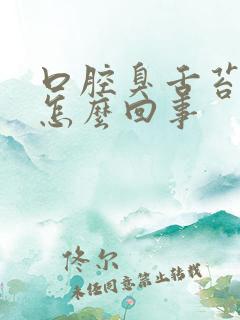 口腔臭舌苔
怎麼回事
佟尔
未经同意禁止转载